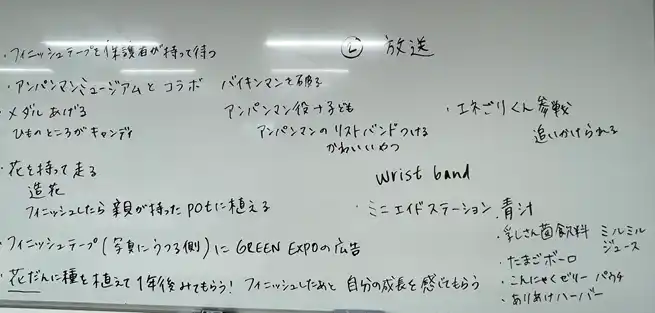 ・フィニッシュテープを保護者が持って待つ
② 放送
・アンパンマンミュージアムと コラボ バイキンマンを破る
・メダルあげる
ひものところがキャンディ
アンパンマン役→子ども
アンパンマンの リストバンドつける
かわいいやつ
・エネごりくん参戦
追いかけられる
・花を持って走る
造花
フィニッシュしたら 親が持ったpotに植える
wrist band
・ミニエイドステーション. 青汁
・乳さん菌飲料 ミルミル
ジュース
・たまごボーロ
・こんにゃくゼリー パウチ
・ありあけハーバー
・フィニッシュテープ(写真にうつる側)に GREEN EXPOの広告
・花だんに種を植えて1年後みてもらう! フィニッシュしたあと 自分の成長を感じてもらう